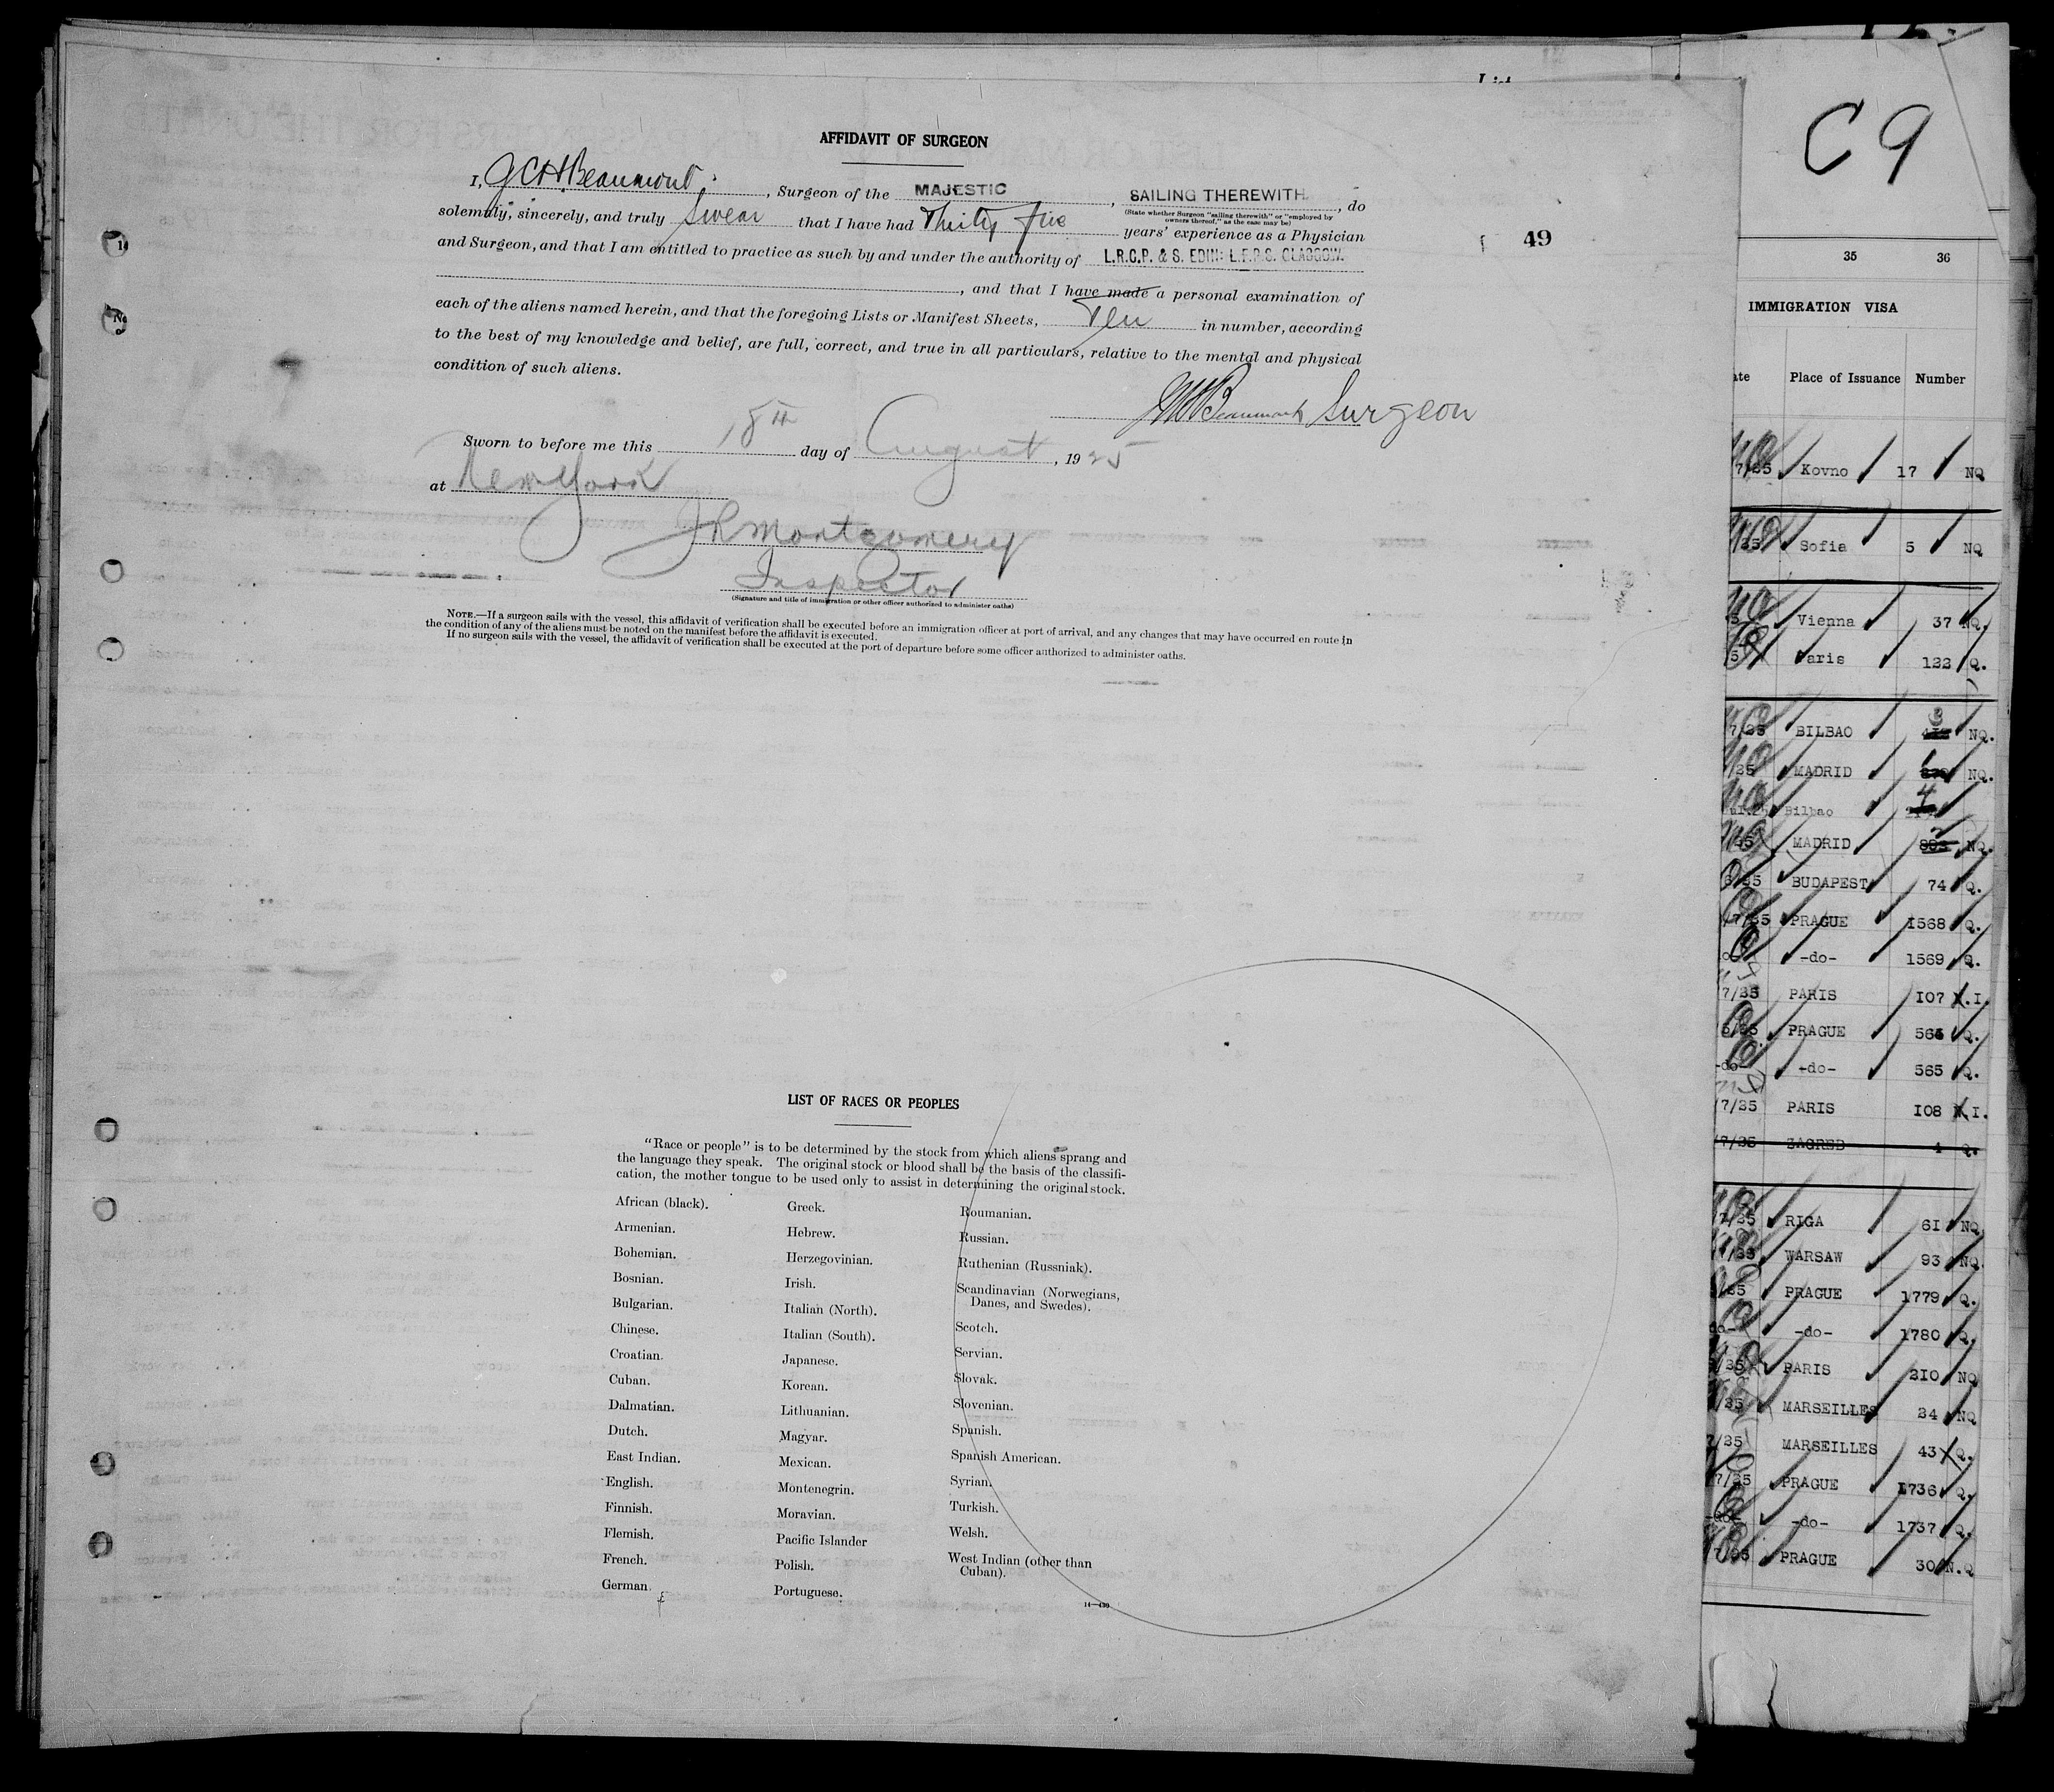 AFFIDAVIT OF SURGEON
I, J C H Beaumont, Surgeon of the MAJESTIC, SAILING THEREWITH, do
(State whether Surgeon "sailing therewith" or "employed by
owners thereof," as the case may be)
solemnly, sincerely, and truly swear that I have had Thirty five years' experience as a Physician
and Surgeon, and that I am entitled to practice as such by and under the authority of L.R.C.P. & S. EDIN: L.F.P.S. GLASGOW.
, and that I have made a personal examination of
each of the aliens named herein, and that the foregoing Lists or Manifest Sheets, Ten in number, according
to the best of my knowledge and belief, are full, correct, and true in all particulars, relative to the mental and physical
condition of such aliens.
Beaumont Surgeon
Sworn to before me this 18th day of August, 1925
at New York
J R Montgomery
Inspector
(Signature and title of immigration or other officer authorized to administer oaths)
NOTE.—If a surgeon sails with the vessel, this affidavit of verification shall be executed before an immigration officer at port of arrival, and any changes that may have occurred en route in
the condition of any of the aliens must be noted on the manifest before the affidavit is executed.
If no surgeon sails with the vessel, the affidavit of verification shall be executed at the port of departure before some officer authorized to administer oaths.
49
LIST OF RACES OR PEOPLES
"Race or people" is to be determined by the stock from which aliens sprang and
the language they speak. The original stock or blood shall be the basis of the classifi-
cation, the mother tongue to be used only to assist in determining the original stock.
African (black).
Armenian.
Bohemian.
Bosnian.
Bulgarian.
Chinese.
Croatian.
Cuban.
Dalmatian.
Dutch.
East Indian.
English.
Finnish.
Flemish.
French.
German.
Greek.
Hebrew.
Herzegovinian.
Irish.
Italian (North).
Italian (South).
Japanese.
Korean.
Lithuanian.
Magyar.
Mexican.
Montenegrin.
Moravian.
Pacific Islander
Polish.
Portuguese.
Roumanian.
Russian.
Ruthenian (Russniak).
Scandinavian (Norwegians,
Danes, and Swedes).
Scotch.
Servian.
Slovak.
Slovenian.
Spanish.
Spanish American.
Syrian.
Turkish.
Welsh.
West Indian (other than
Cuban).
14—430
C9
35 36
IMMIGRATION VISA
Place of Issuance Number
7/25 Kovno 17 NQ
/25 Sofia 5 NQ
Vienna 37 NQ.
5 Paris 122 Q.
7/25 BILBAO 3 NQ.
/25 MADRID NQ.
Bilbao 4
/25 MADRID NQ.
6/25 BUDAPEST 74 Q.
/7/25 PRAGUE 1568 Q.
-do- 1569 Q.
7/25 PARIS 107 .I.
5/25 PRAGUE 566 Q.
-do- -do- 565 Q.
/7/25 PARIS 108 .I.
/7/25 ZAGREB 1 Q.
7/25 RIGA 61 NQ
/25 WARSAW 93 NQ
/25 PRAGUE 1779 Q.
do- -do- 1780 Q.
/25 PARIS 210 NQ
/25 MARSEILLES 34 NQ
7/25 MARSEILLES 43 Q.
7/25 PRAGUE 1736 Q.
-do- -do- 1737 Q.
7/25 PRAGUE 30 N.Q